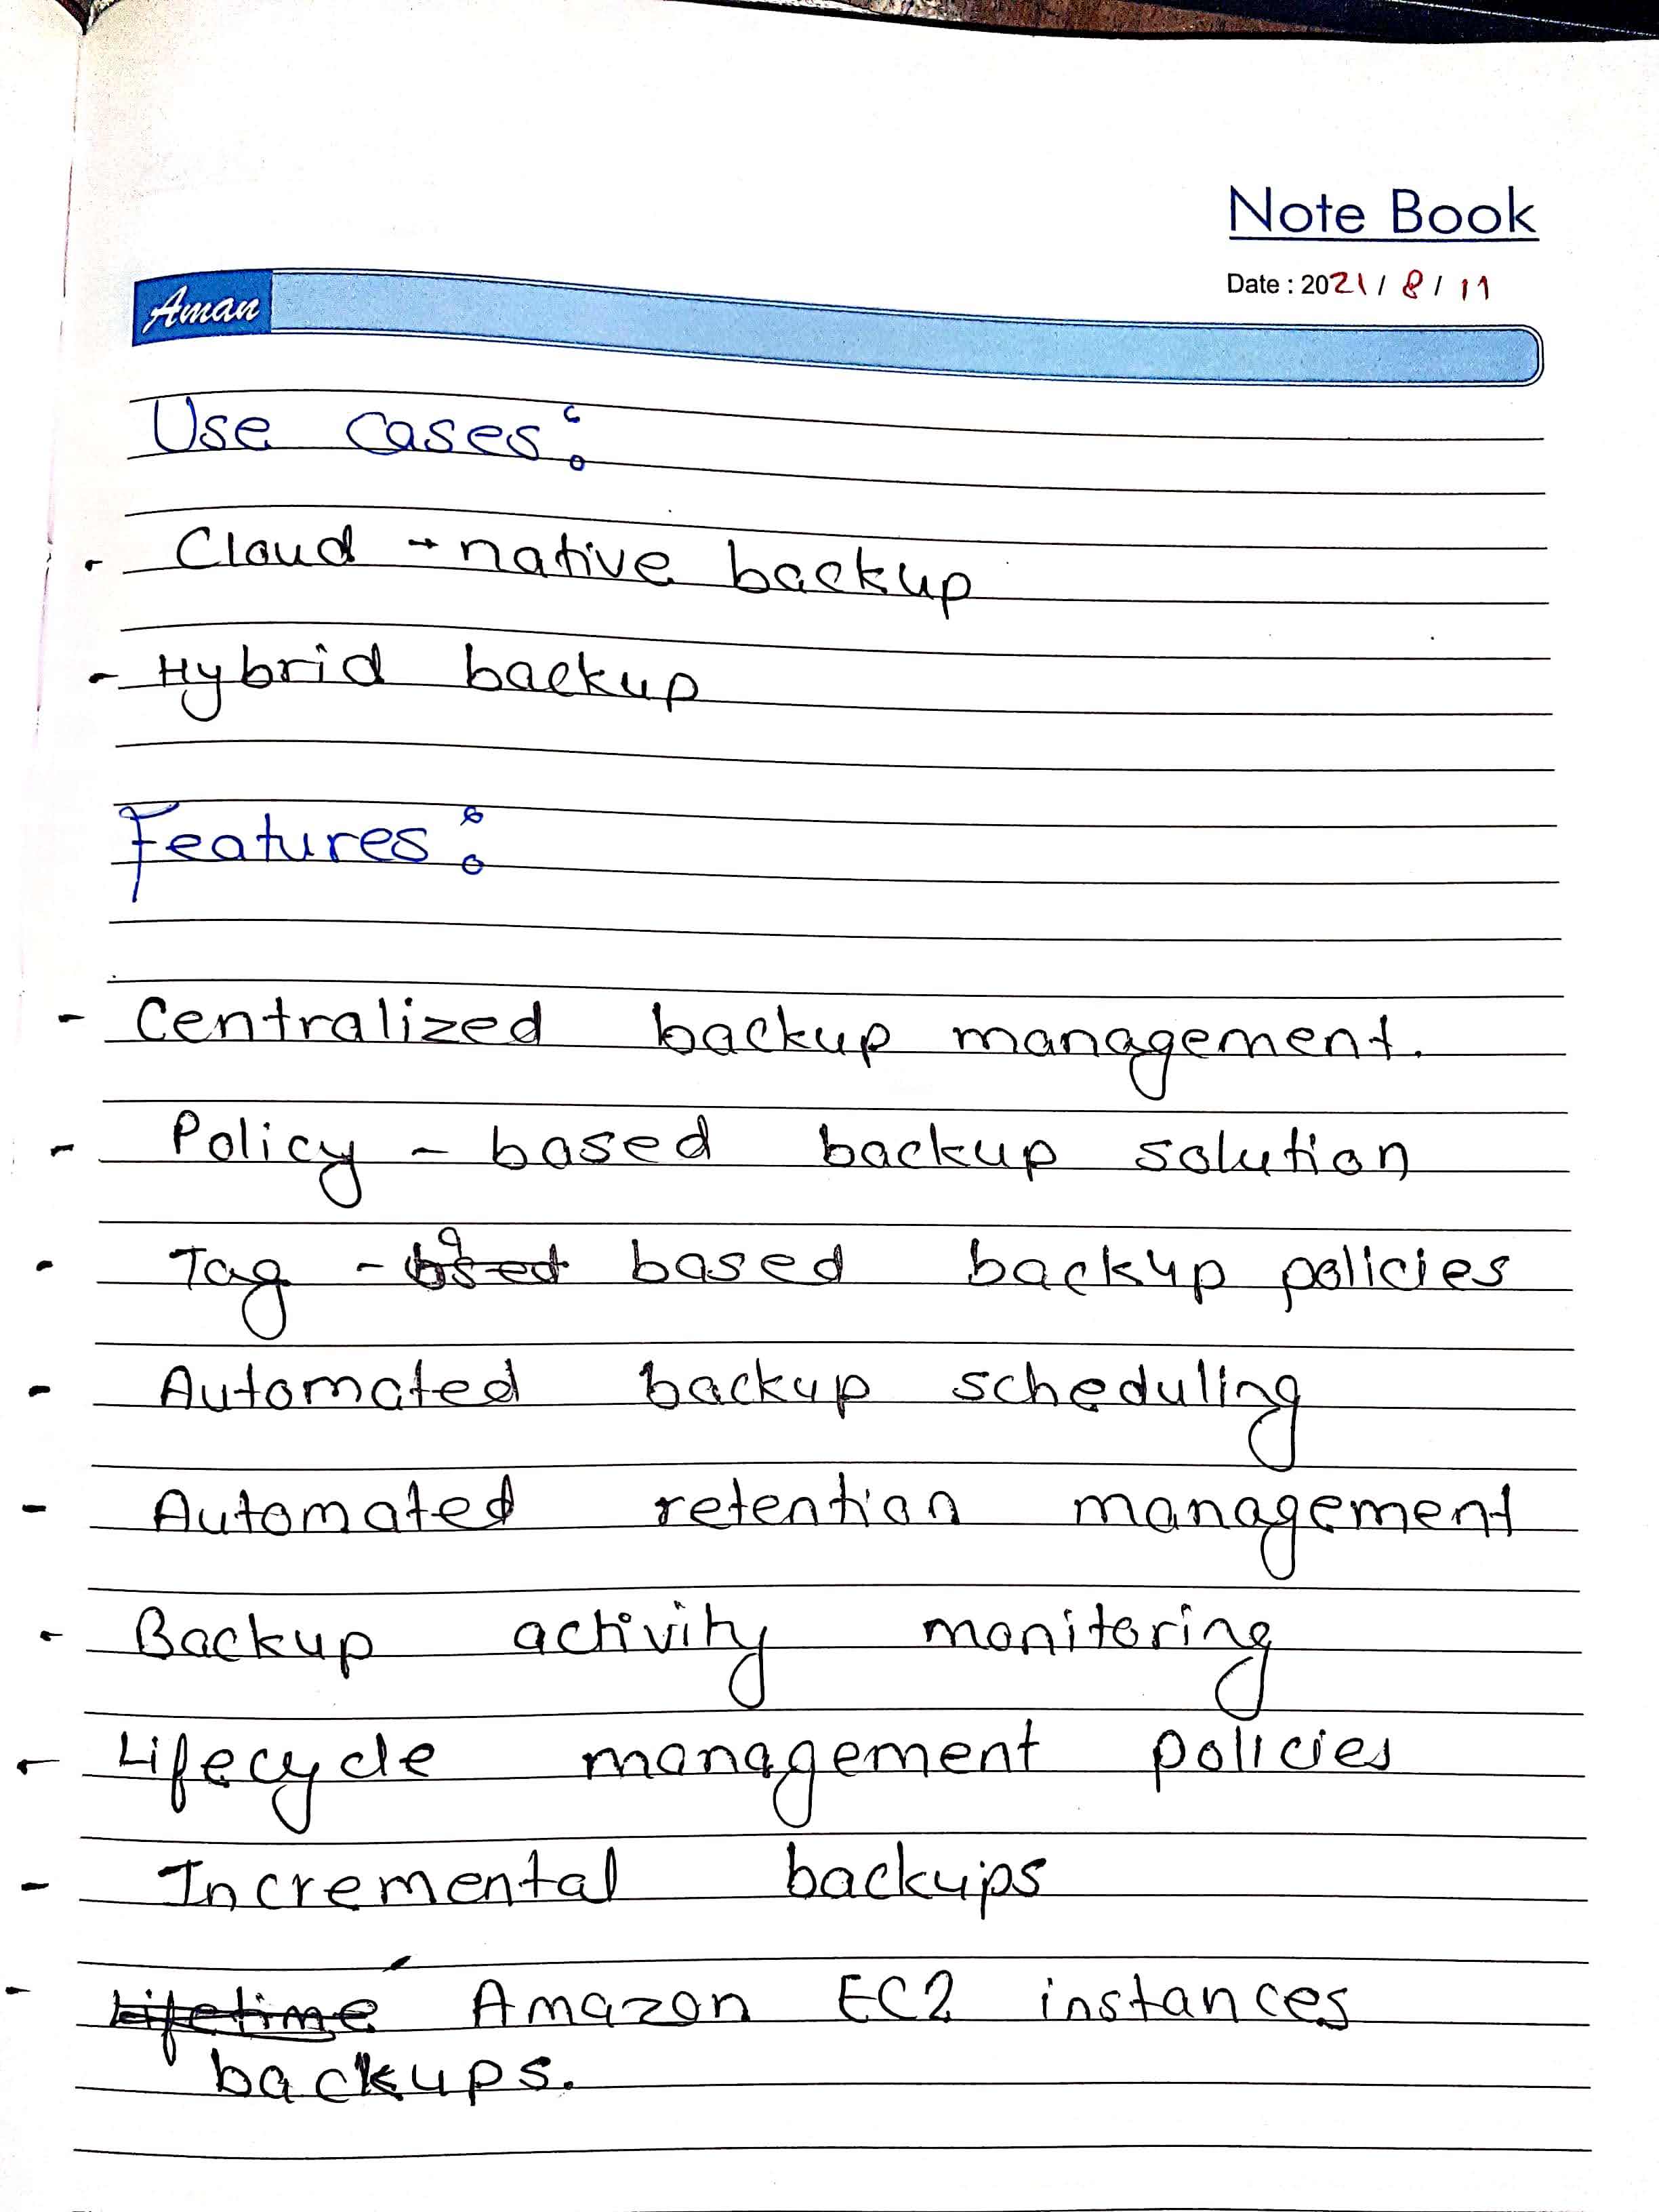 Note Book
Date : 2021 / 8 / 11
Aman
Use cases:
- Cloud - native backup
- Hybrid backup
Features:
- Centralized backup management.
- Policy - based backup solution
- Tag - based based backup policies
- Automated backup scheduling
- Automated retention management
- Backup activity monitoring
- Lifecycle management policies
- Incremental backups
- Lifetime Amazon EC2 instances
backups.